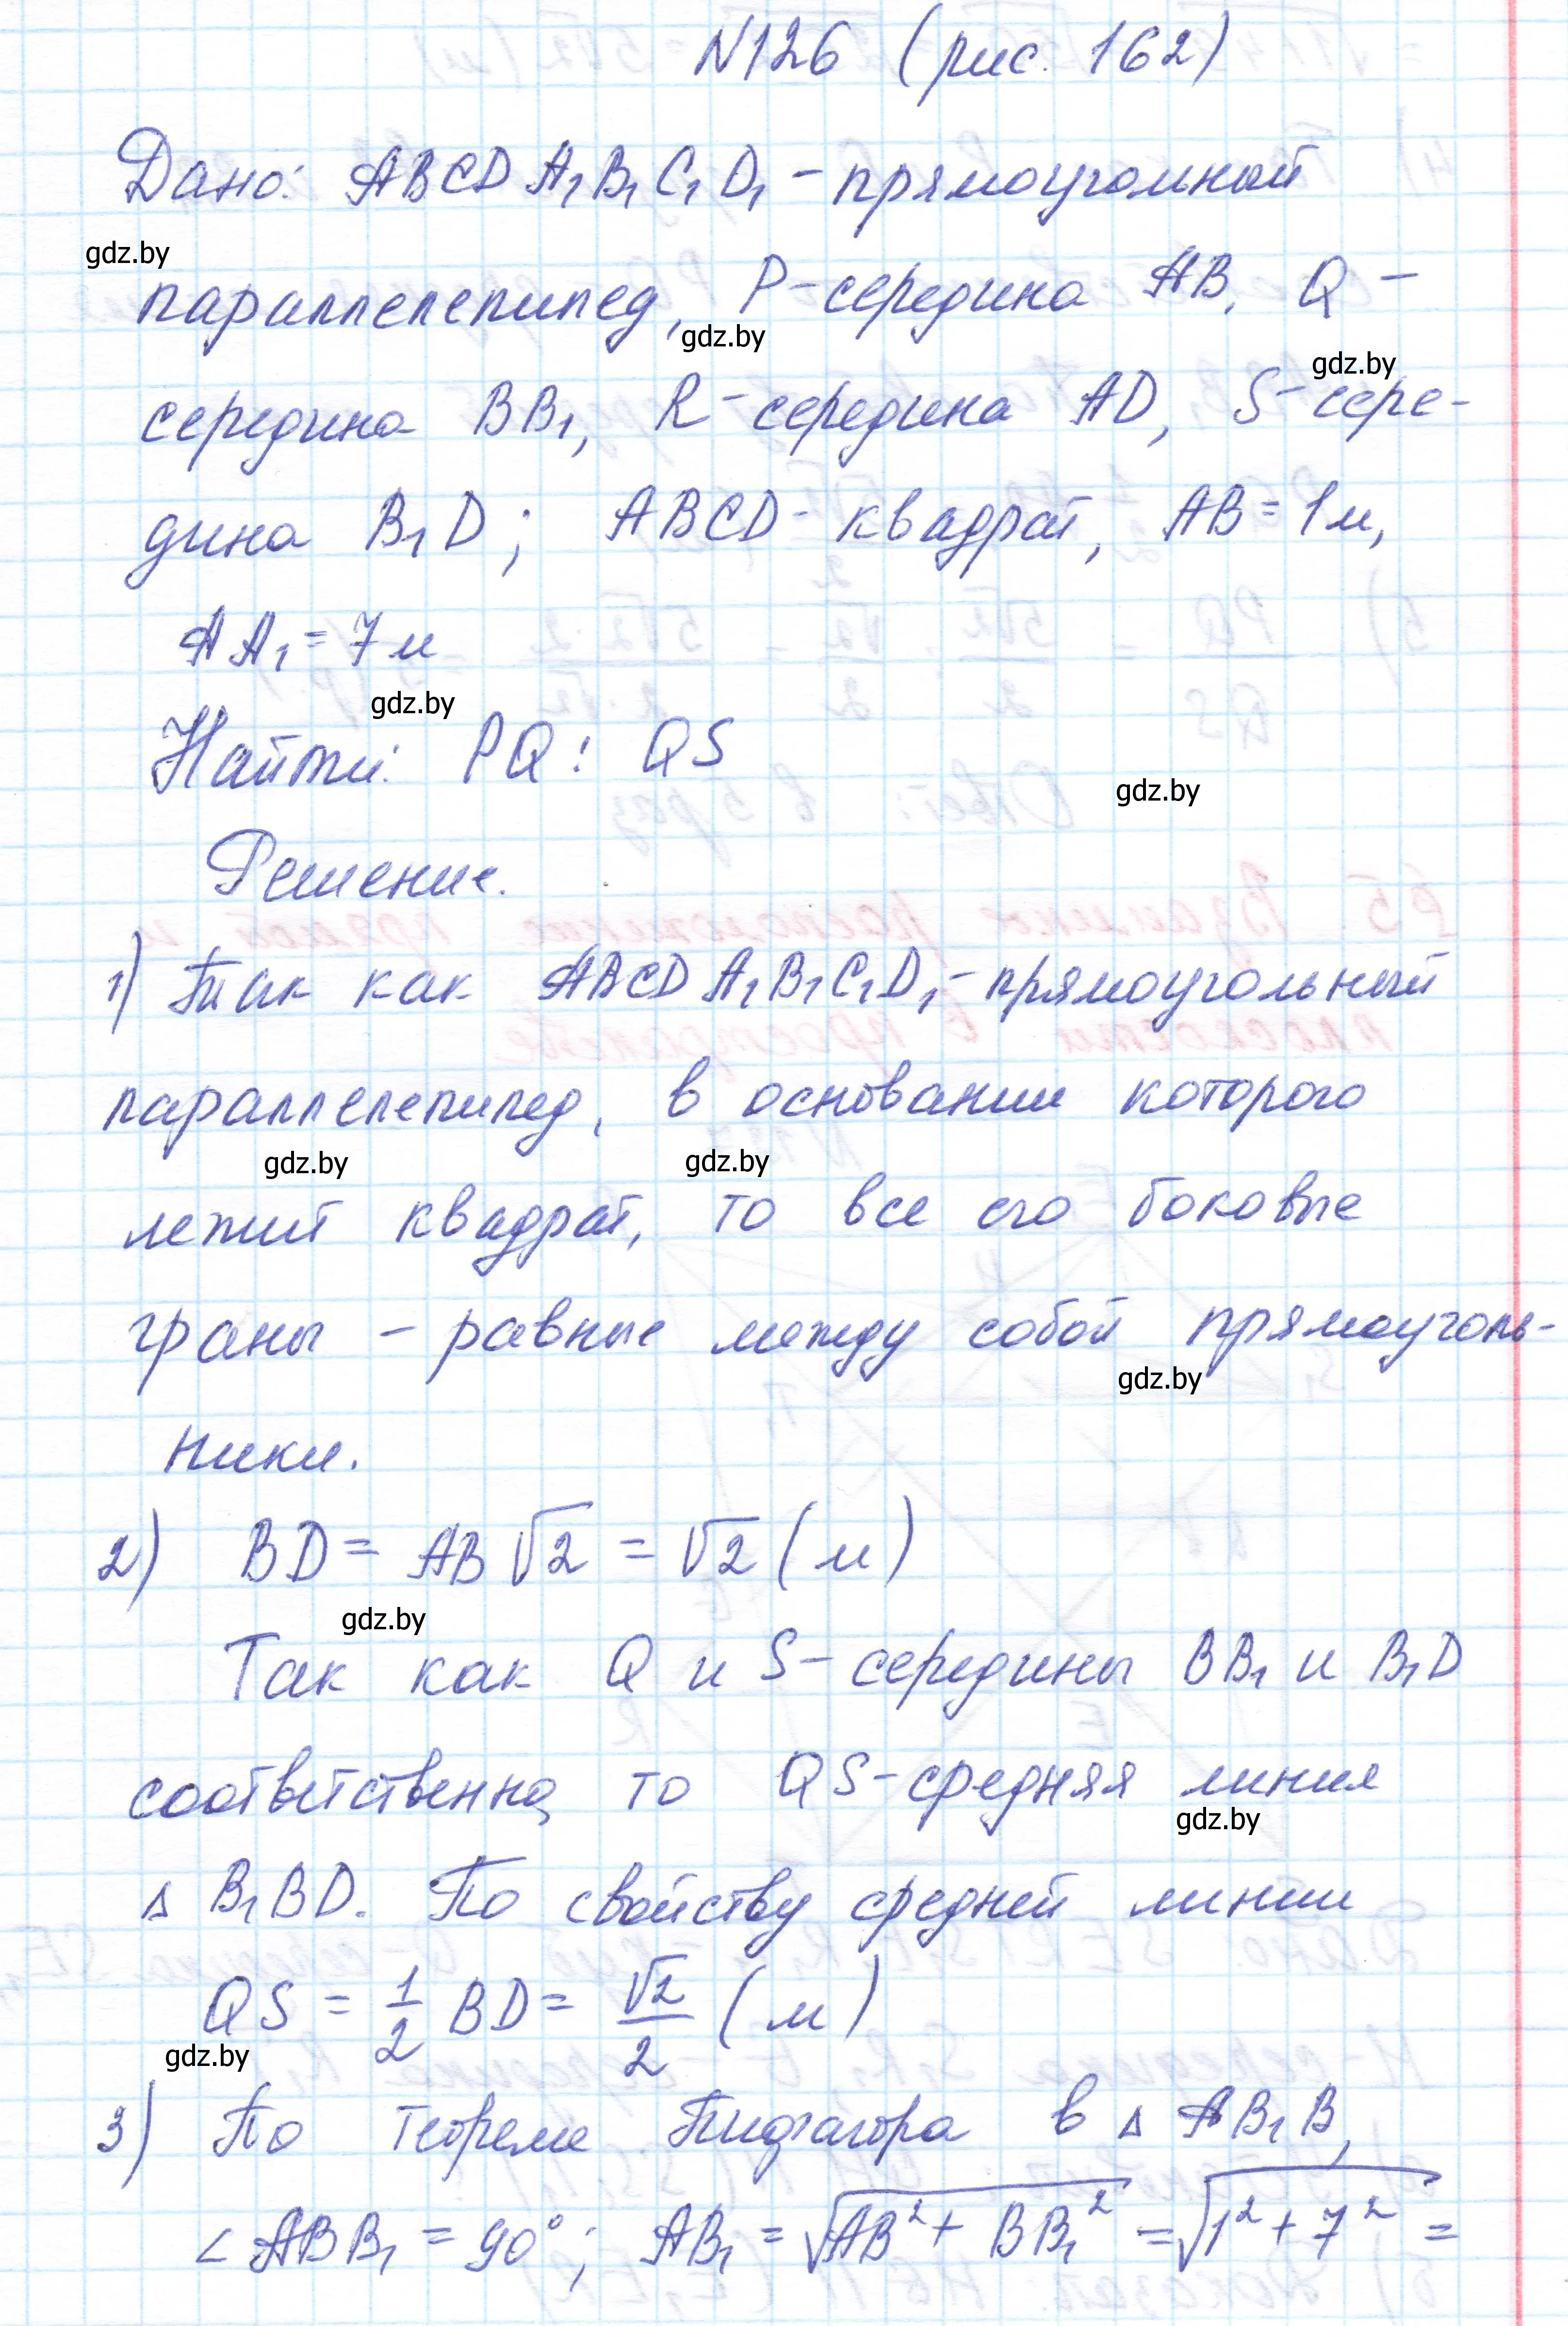 N126 (рис. 162)
Дано: ABCDA₁B₁C₁D₁ - прямоугольный
gdz.by
параллелепипед, P-середина AB, Q -
gdz.by
gdz.by
середина BB₁, R-середина AD, S-сере-
дина B₁D; ABCD - квадрат, AB = 1м,
AA₁ = 7м
gdz.by
Найти: PQ : QS
gdz.by
Решение.
1) Так как ABCDA₁B₁C₁D₁ - прямоугольный
параллелепипед, в основании которого
gdz.by gdz.by
лежит квадрат, то все его боковые
граны - равные между собой прямоуголь-
gdz.by
ники.
2) BD = AB√2 = √2 (м)
gdz.by
Так как Q и S - середины BB₁ и B₁D
соответственно, то QS - средняя линия
gdz.by
Δ B₁BD. По свойству средней линии
QS = 1/2 BD = √2/2 (м)
gdz.by
3) По теореме Пифагора в Δ AB₁B,
∠ABB₁ = 90°; AB₁ = √(AB² + BB₁²) = √(1² + 7²) =